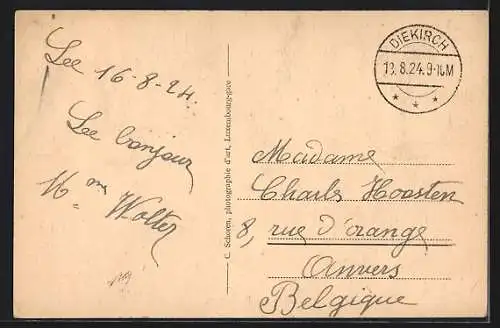 Lee 16-8-24.
Le bonjour
Mme Wolter
C. Schoren, photographie d'art, Luxembourg-gare
DIEKIRCH
8.24.9-10M
* * *
Madame
Charles Hoosten
8, rue d'orange
Anvers
Belgique